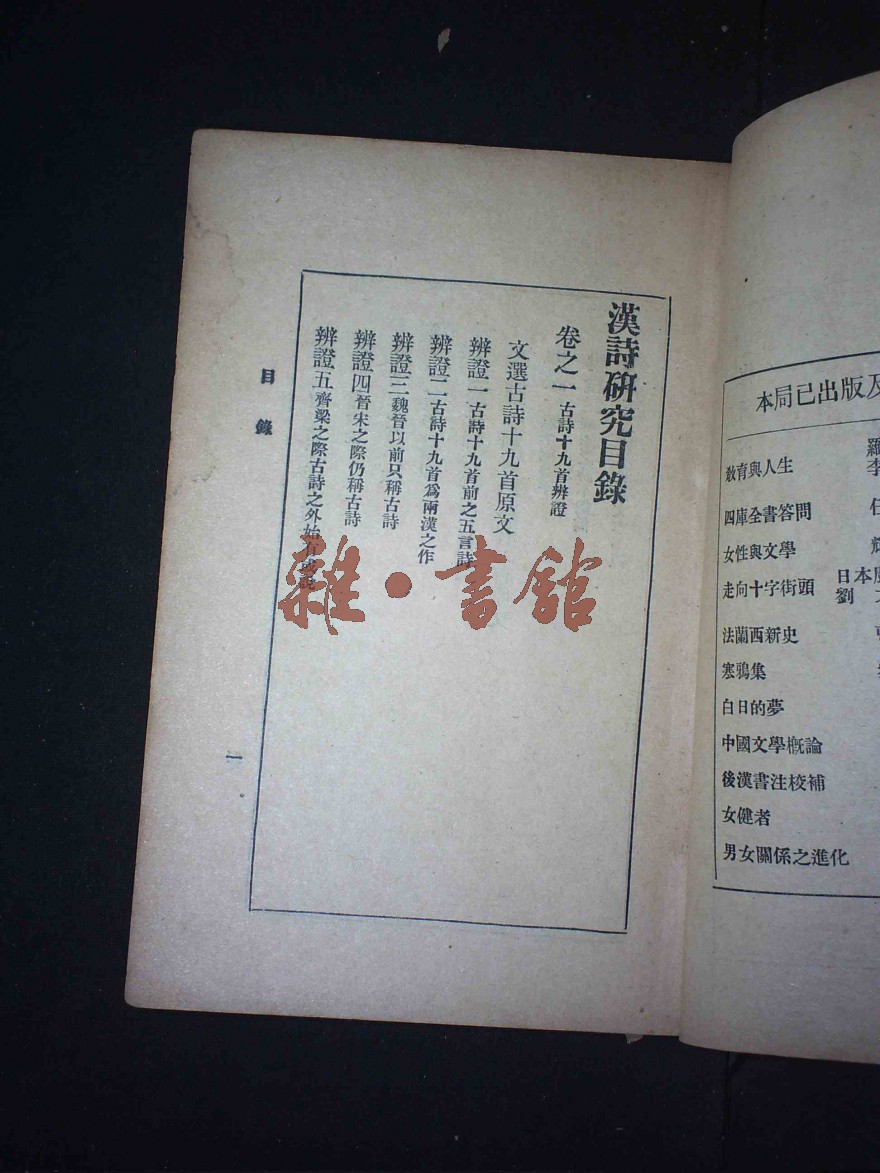 漢詩研究目錄
卷之一 古詩十九首辨證
文選古詩十九首原文
辨證一 古詩十九首前之五言詩
辨證二 古詩十九首爲兩漢之作
辨證三 魏晉以前只稱古詩
辨證四 晉宋之際仍稱古詩
辨證五 齊梁之際古詩之外始有
目錄
一
雜·書館
本局已出版及
教育與人生 羅
李
四庫全書答問 任
女性與文學 輝
走向十字街頭 日本
劉
法蘭西新史
寒鴉集
白日的夢
中國文學概論
後漢書注校補
女健者
男女關係之進化